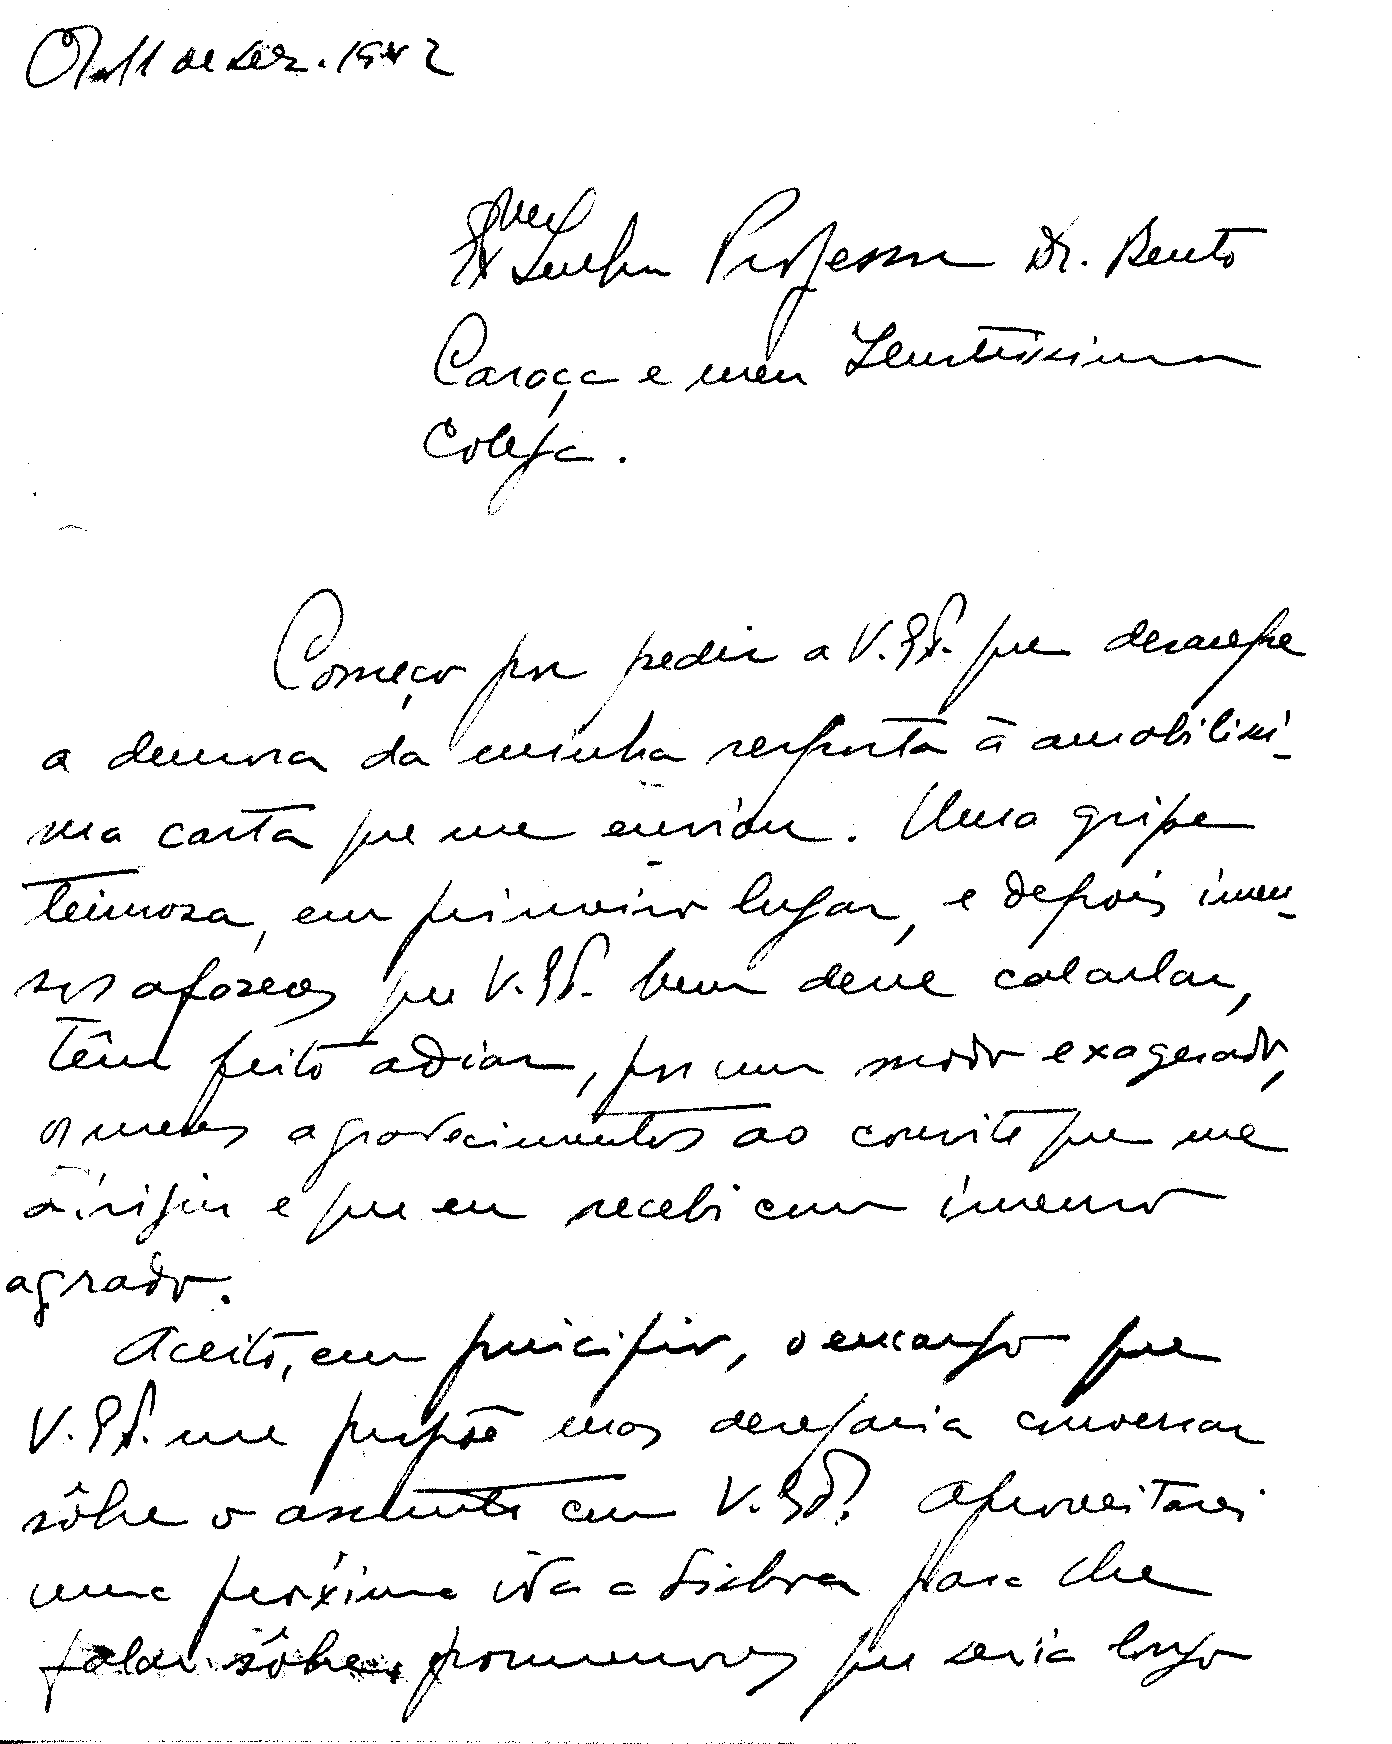 11 de Dez. 1942
Exmo Senhor Professor Dr. Bento
Caraça e meu Ilustríssimo
Colega.
Começo por pedir a V. Exª. que desculpe
a demora da minha resposta à amabilíssi-
ma carta que me enviou. Uma gripe
teimosa, em primeiro lugar, e depois imen-
sos afazeres que V. Exª. bem deve calcular,
têm feito adiar, por um modo exagerado,
os meus agradecimentos ao convite que me
dirigiu e que eu recebi com imenso
agrado.
Aceito, em princípio, o encargo que
V. Exª. me propõe mas desejaria conversar
sôbre o assunto com V. Exª. Aproveitarei
uma próxima ida a Lisboa para lhe
falar sôbre pormenores que seria longo